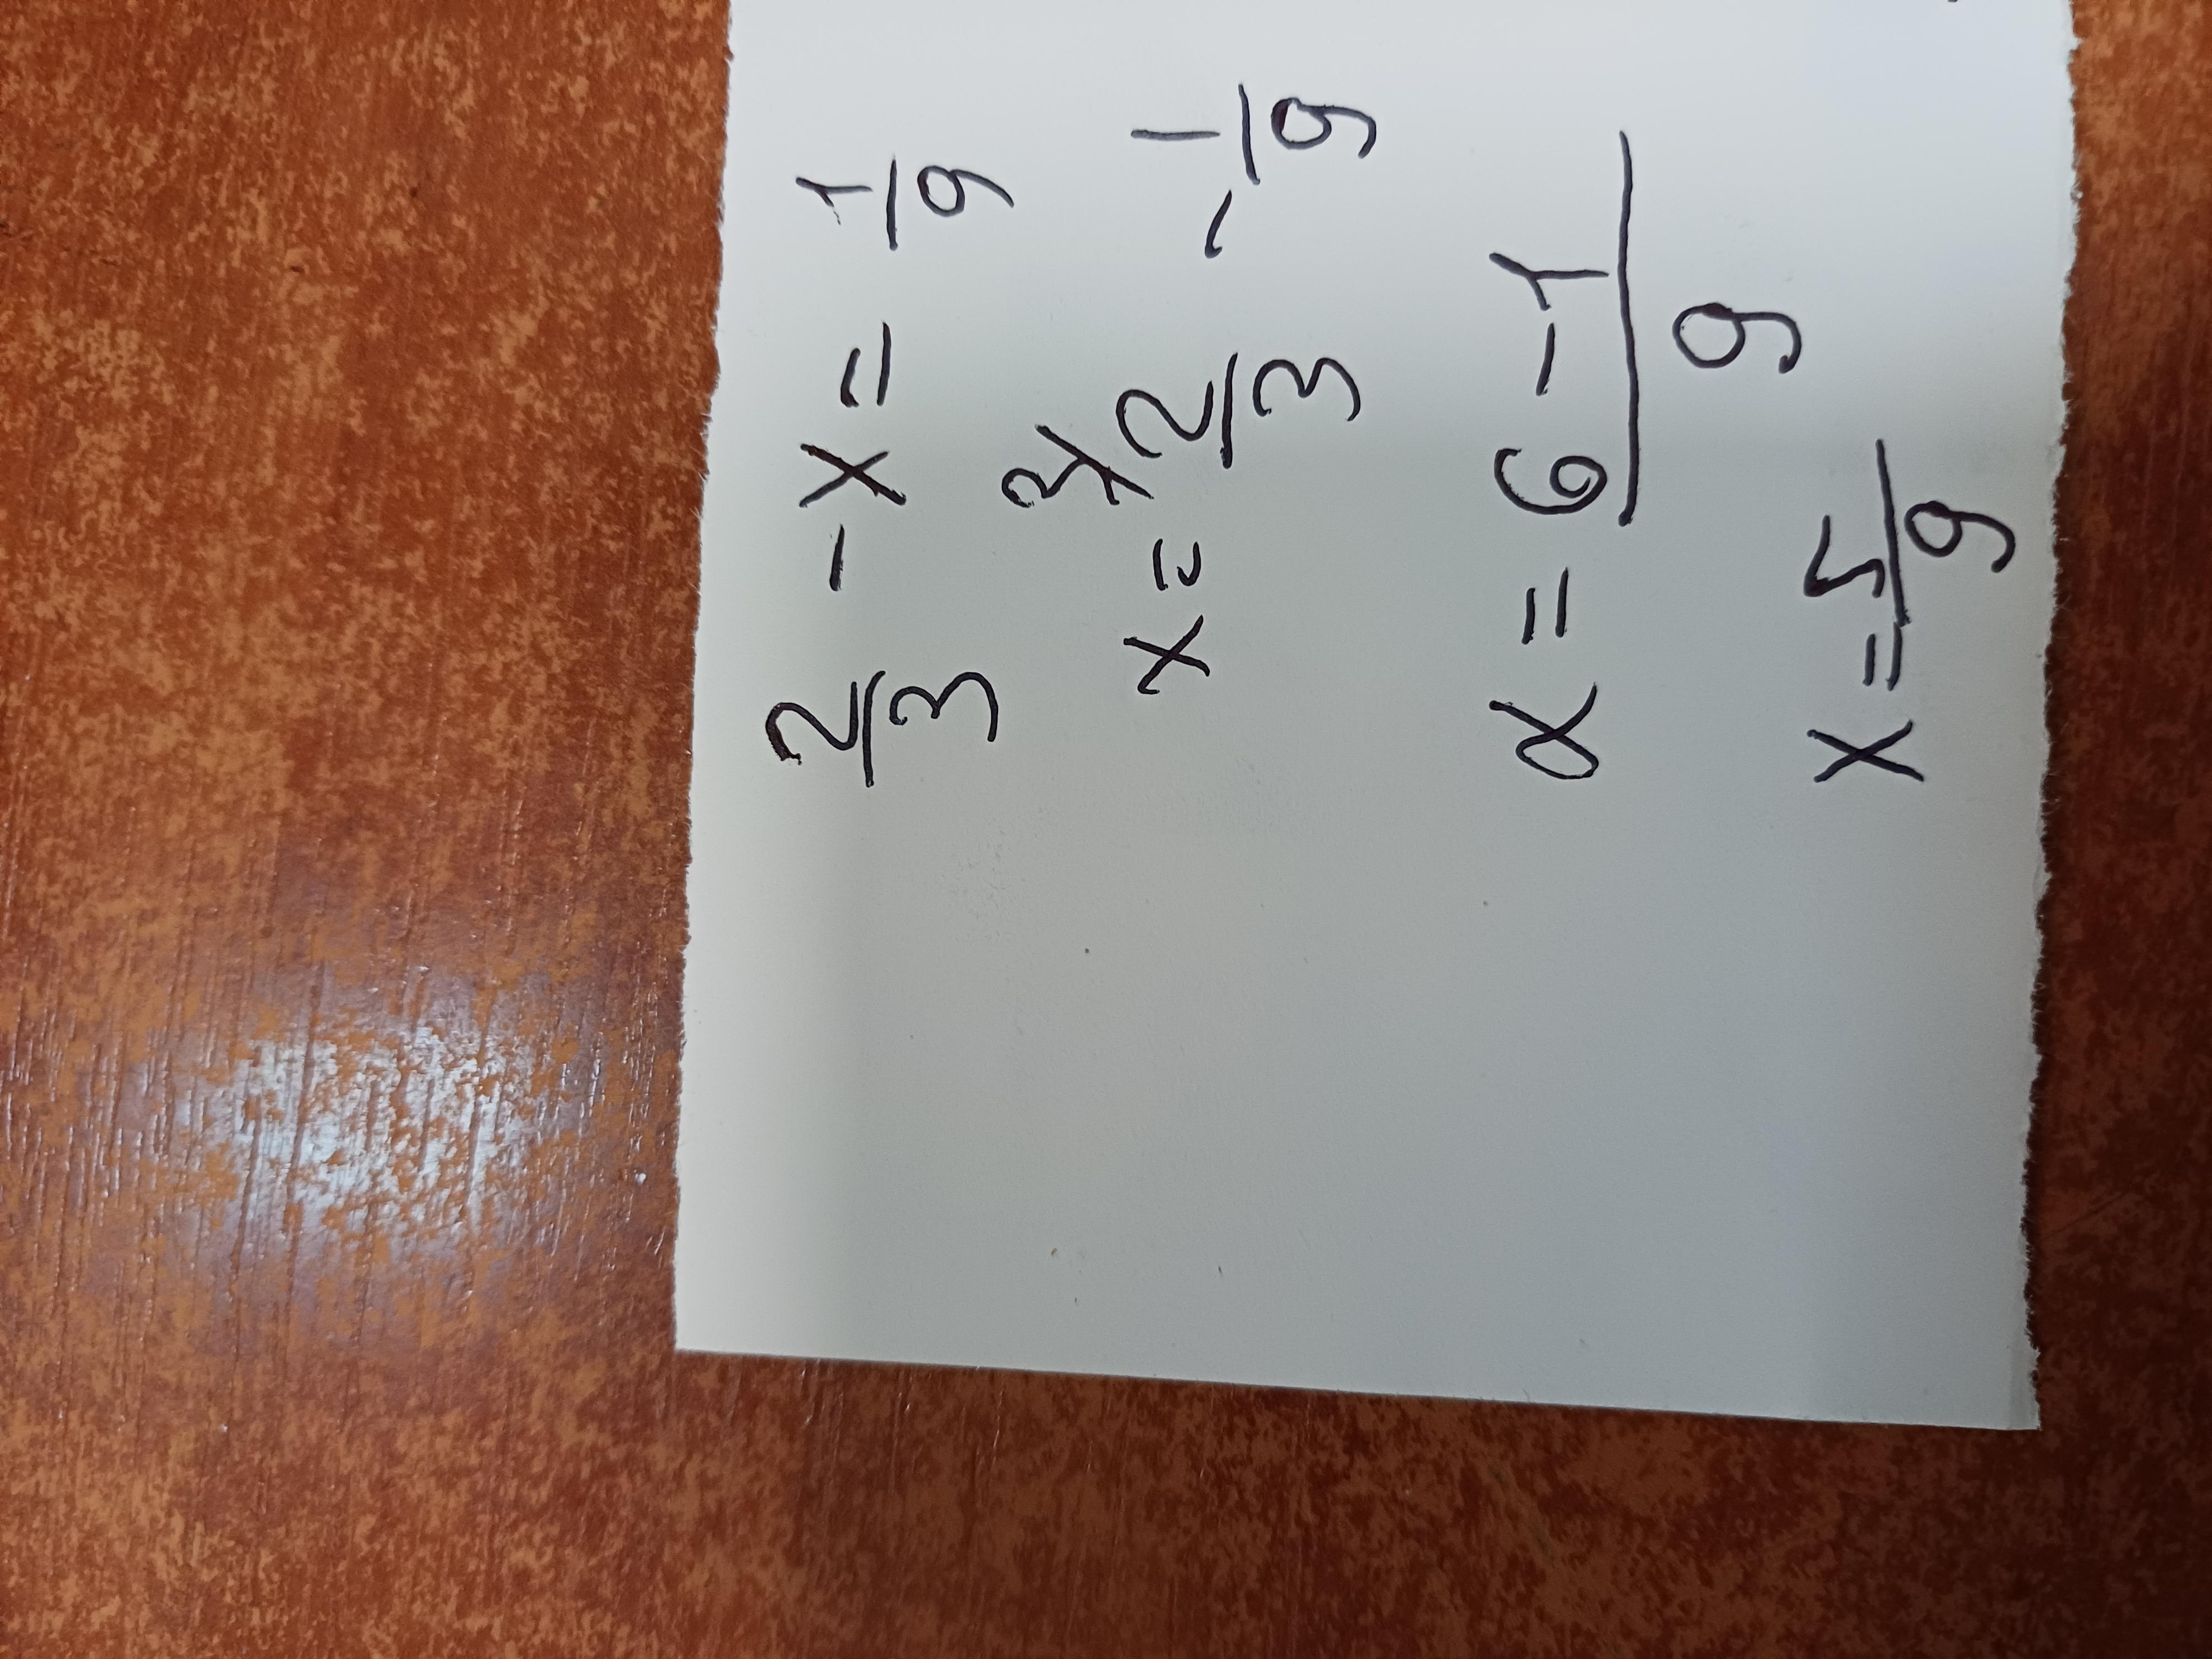 2/3 - x = 1/9
x = 3\2/3 - 1/9
x = 6-1/9
x = 5/9